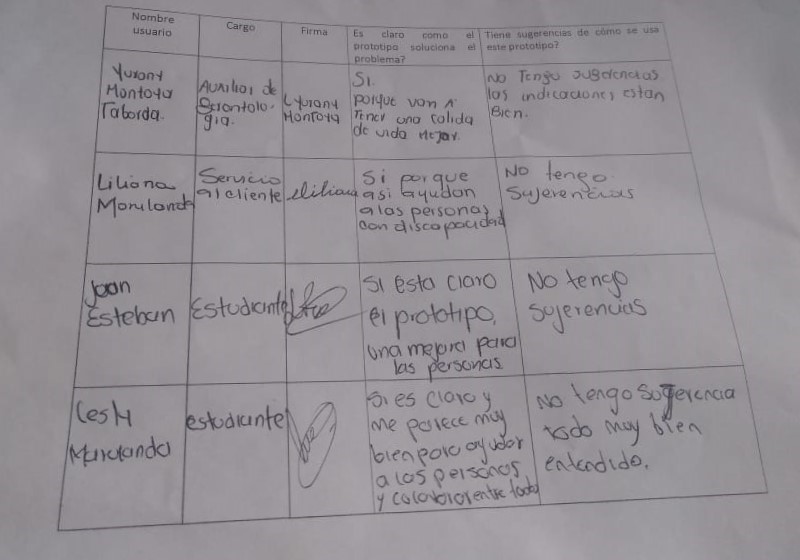 Nombre
usuario
Cargo
Firma
Es claro como el
prototipo soluciona el
problema?
Tiene sugerencias de cómo se usa
este prototipo?
Yurany
Montoya
Taborda.
Auxiliar de
Gerontolo-
gia.
Yurany
Montoya
SI.
porque van A
Tener una calida
de vida Mejor.
No Tengo sugerencias
las indicaciones estan
Bien.
Liliana
Marulanda
Servicio
al cliente
Liliana
Si porque
asi ayudan
a las personas
con discapacidad
No tengo
Sujerencias
Joan
Esteban
Estudiante
SI esta claro
el prototipo,
una mejora para
las personas
No tengo
sujerencias
Lesly
Marulanda
estudiante
Si es claro y
me parece muy
bien para ayudar
a las personas
y colaborar entre todos
No tengo sugerencia
todo muy bien
entendido.